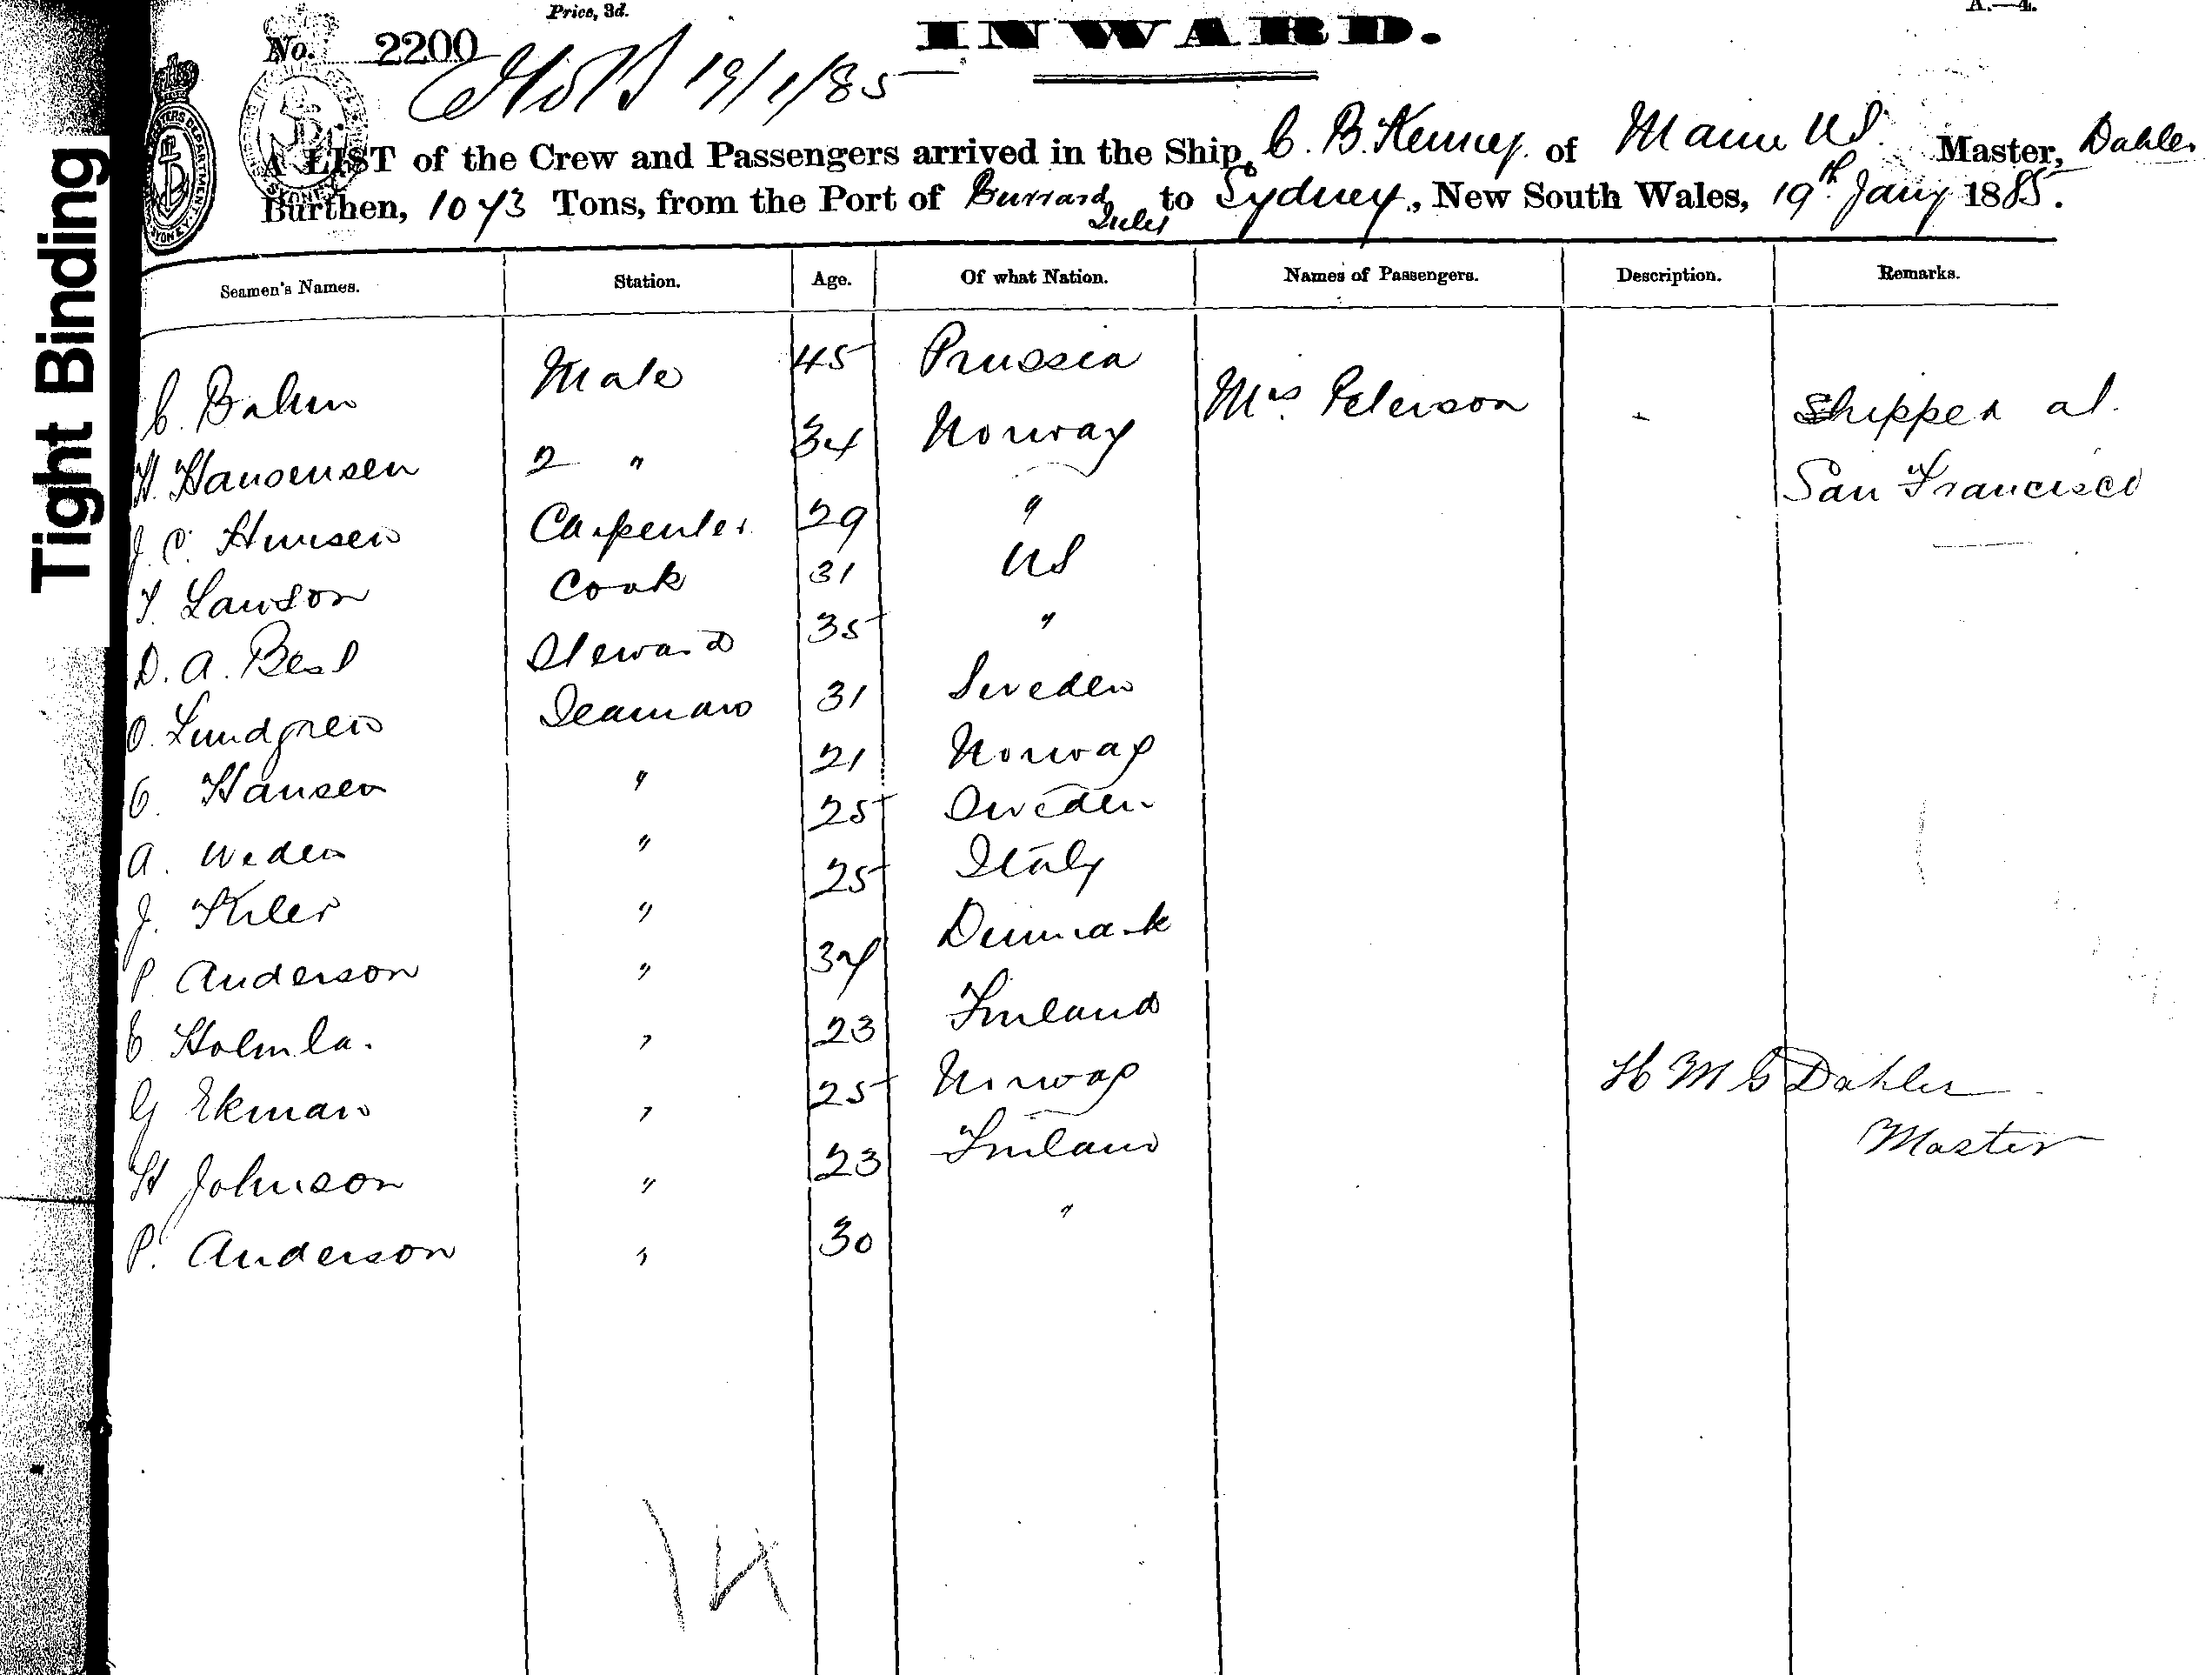 Price, 3d.
A.—4.
No. 2200
INWARD.
19/1/85
A LIST of the Crew and Passengers arrived in the Ship, C. B. Kenney of Maine US. Master, Dahler
Burthen, 1073 Tons, from the Port of Burrard Inlet to Sydney, New South Wales, 19th Jany 1885.
Seamen's Names. Station. Age. Of what Nation. Names of Passengers. Description. Remarks.
C. Bahn Mate 45 Prussia Mrs Peterson - Shipped at
H. Hansensen 2 " 34 Norway San Francisco
J. C. Hansen Carpenter 29 "
T. Lawson Cook 31 US
D. A. Best Steward 35 "
O. Lundgren Seaman 31 Sweden
C. Hansen " 21 Norway
A. Weden " 25 Sweden
J. " 25 Italy
P. Anderson " 34 Denmark
C Holmla. " 23 Finland
G Ekman " 25 Norway
H Johnson " 23 Finland
P. Anderson " 30 "
H M G Dahler
Master
14
Tight Binding